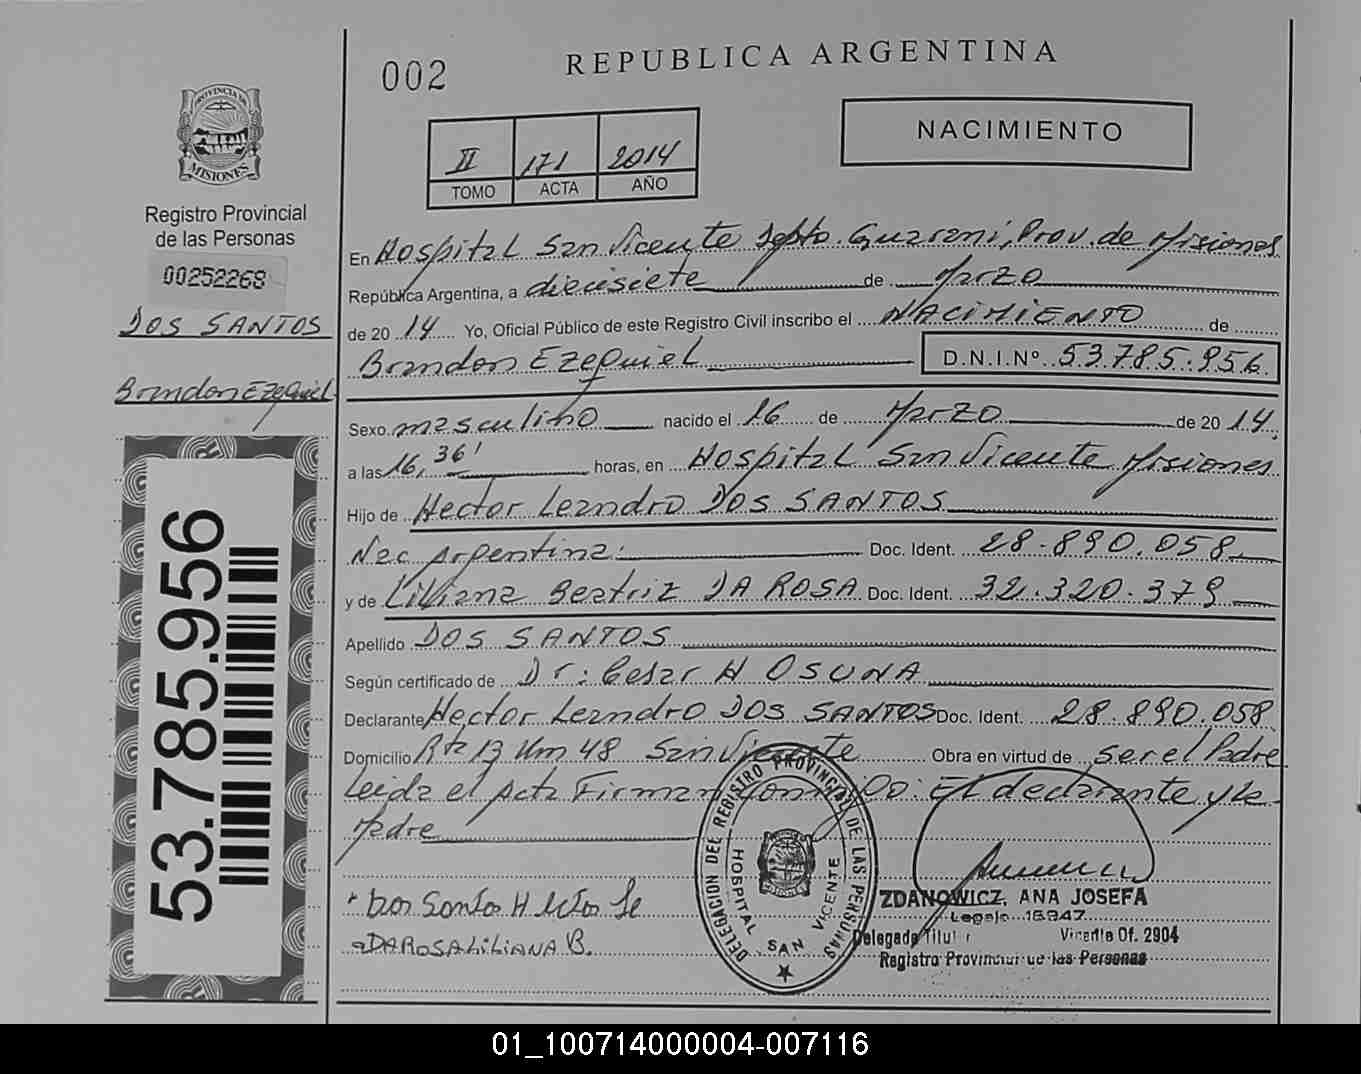 002
REPUBLICA ARGENTINA
PROVINCIA DE
MISIONES
Registro Provincial
de las Personas
00252268
DOS SANTOS
Brandon EZEQuiel
53.785.956
II 171 2014
TOMO ACTA AÑO
NACIMIENTO
En Hospital San Vicente Dpto. Guarani, Prov. de Misiones
República Argentina, a diecisiete de Marzo
de 2014 Yo, Oficial Público de este Registro Civil inscribo el NACIMIENTO de
Brandon EZEQuiEL D.N.I.Nº 53.785.956
Sexo masculino nacido el 16 de Marzo de 2014
a las 16,36' horas, en Hospital San Vicente Misiones
Hijo de Hector Leandro DOS SANTOS
Nac Argentina: Doc. Ident. 28.890.058
y de Liliana Beatriz DA ROSA Doc. Ident. 32.320.379
Apellido DOS SANTOS
Según certificado de Dr: Cesar H OSUNA
Declarante Hector Leandro DOS SANTOS Doc. Ident. 28.890.058
Domicilio Rta 13 Km 48 San Vicente Obra en virtud de ser el Padre
Leida el Acta Firman conmigo: El declarante y la
Madre
Dos Santos Hector Le
DAROSA LILIANA B.
DELEGACION DEL REGISTRO PROVINCIAL DE LAS PERSONAS
HOSPITAL SAN VICENTE
ZDANOWICZ, ANA JOSEFA
Legajo 16947
Delegada Titular Vicente Of. 2904
Registro Provincial de las Personas
01_100714000004-007116